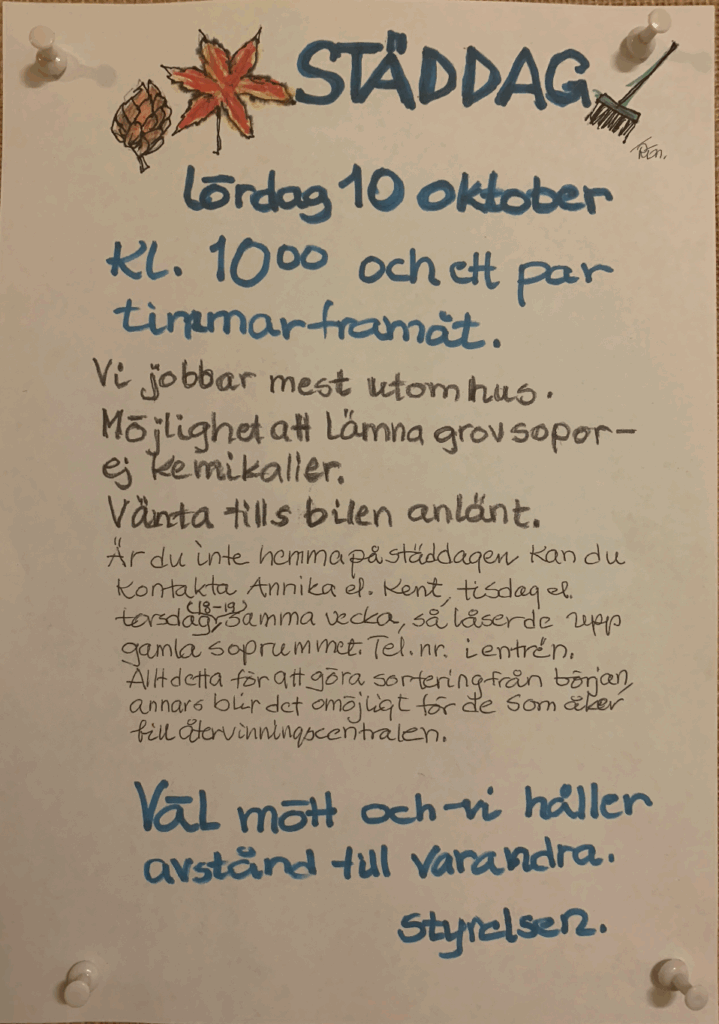 STÄDDAG
lördag 10 oktober
Kl. 10⁰⁰ och ett par
timmar framåt.
Vi jobbar mest utomhus.
Möjlighet att lämna grovsopor–
ej kemikaller.
Vänta tills bilen anlänt.
Är du inte hemma på städdagen kan du
kontakta Annika el. Kent, tisdag el.
torsdag (18-19), samma vecka, så låser de upp
gamla soprummet. Tel.nr. i entrén.
Allt detta för att göra sortering från början,
annars blir det omöjligt för de som åker
till återvinningscentralen.
Väl mött och vi håller
avstånd till varandra.
Styrelsen.